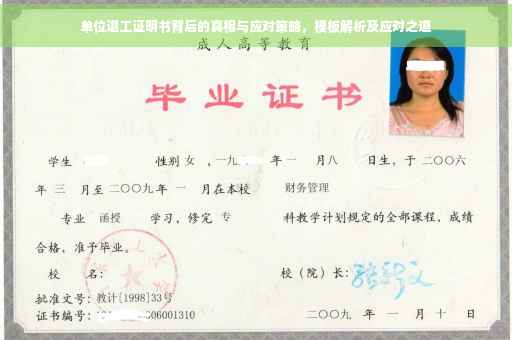 单位退工证明书背后的真相与应对策略，模板解析及应对之道
成人高等教育
毕业证书
学生 性别 女 ，一九 年 一 月 八 日生，于 二〇〇六
年 三 月至 二〇〇九 年 一 月在本校 财务管理
专业 函授 学习，修完 专 科教学计划规定的全部课程，成绩
合格，准予毕业。
校 名： 校（院）长：
批准文号：教计[1998]33号
证书编号： 06001310 二〇〇九 年 一 月 十 日